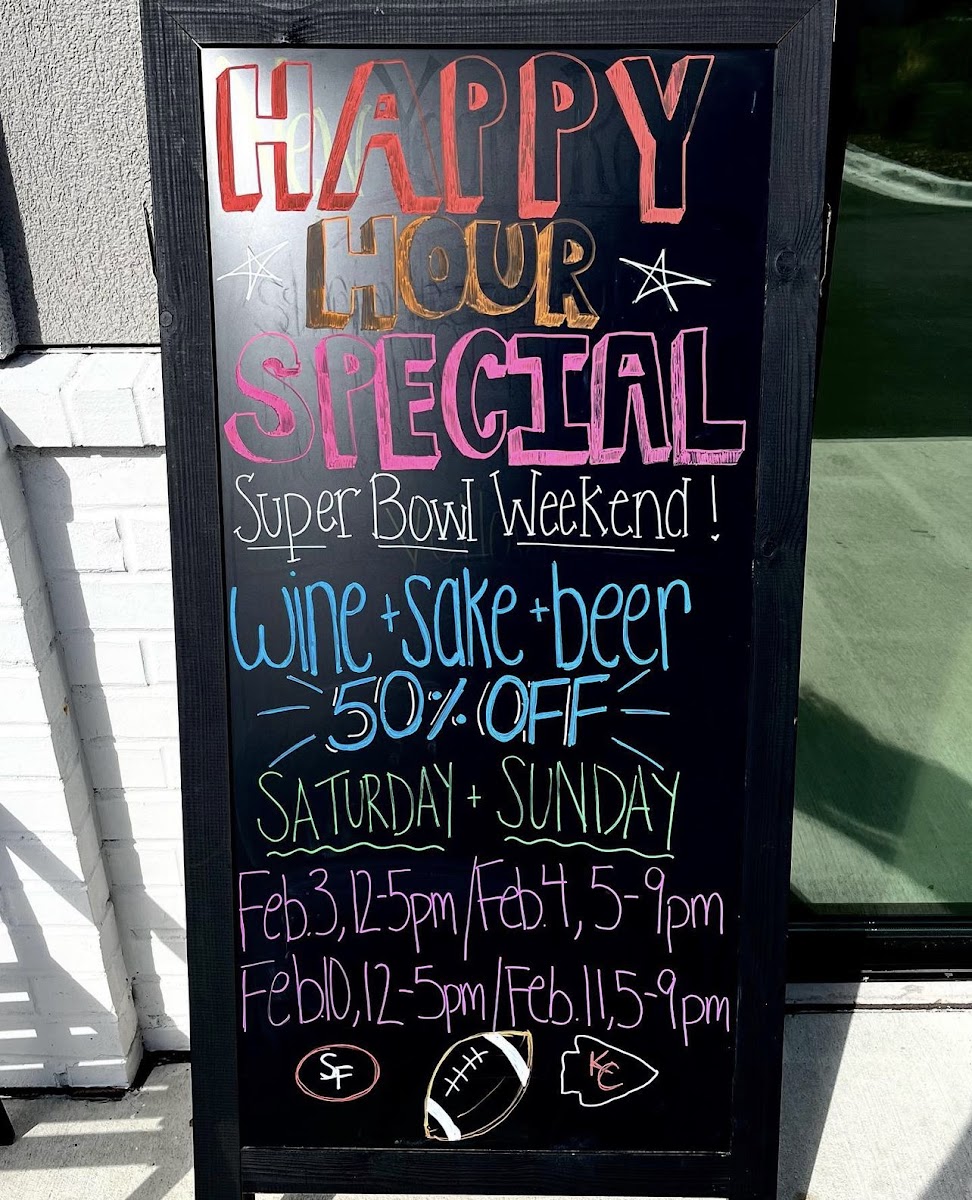 HAPPY
HOUR
SPECIAL
Super Bowl Weekend!
wine + sake + beer
50% OFF
SATURDAY + SUNDAY
Feb. 3, 12-5pm / Feb. 4, 5-9pm
Feb. 10, 12-5pm / Feb. 11, 5-9pm
SF KC